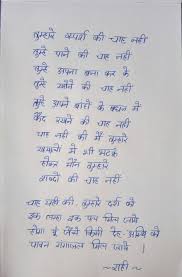 तुम्हारे सम्पर्क की चाह नहीं
तुम्हे पाने की चाह नहीं
तुम्हे अपना बना कर के
तुम्हे खोने की चाह नहीं
तुम्हे अपने बाहों के बन्धन में
कैद रखने की चाह नहीं
चाह नहीं की मैं तुम्हारे
ख्यालों में भी भटकूँ
होकर मौन तुम्हारे
शब्दों की चाह नहीं
चाह यही की तुम्हारे दर्श का
इक लम्हा इक पल मिल जाये
होगा यूँ जैसे किसी देह को
पावन गंगाजल मिल जाये ।
~ शही ~